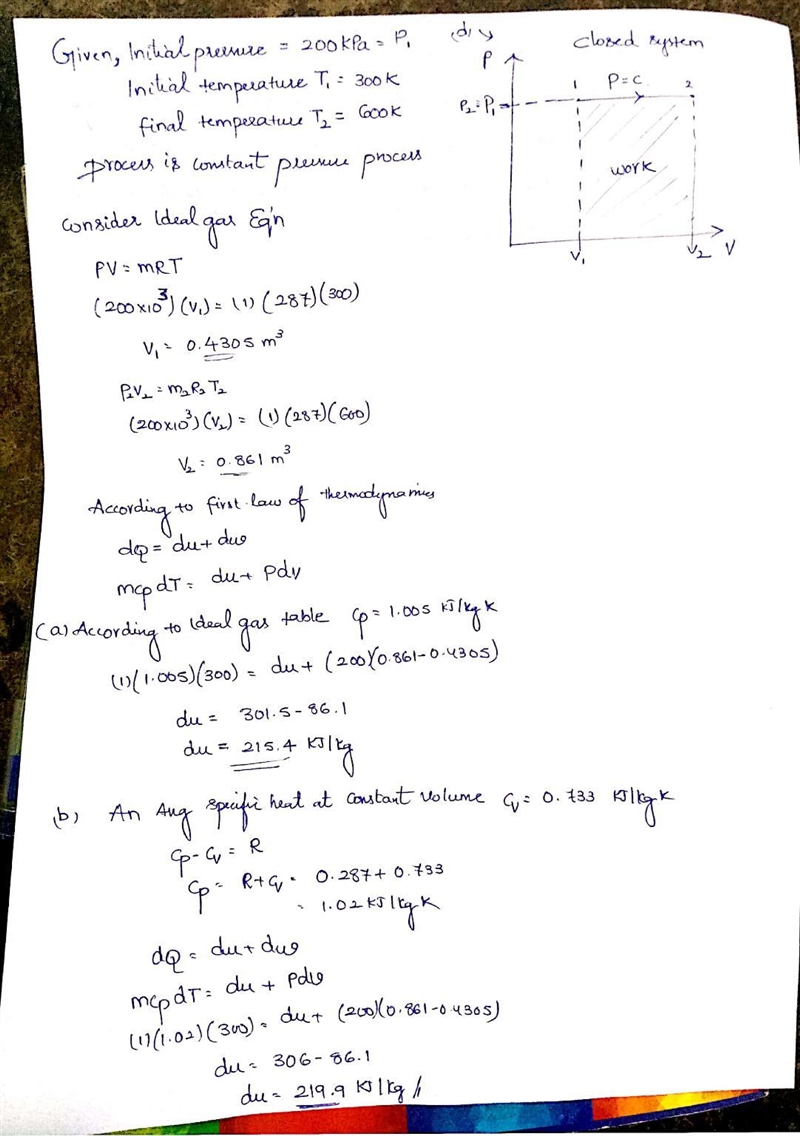 Given, Initial pressure = 200 kPa = P₁
Initial temperature T₁ = 300K
final temperature T₂ = 600K
process is constant pressure process
(d)
closed system
P
1 P=C 2
P₂=P₁
work
V₁ V₂ V
Consider Ideal gas Eq'n
PV = mRT
(200x10³)(V₁) = (1)(287)(300)
V₁ = 0.4305 m³
P₂V₂ = m₂R₂T₂
(200x10³)(V₂) = (1)(287)(600)
V₂ = 0.861 m³
According to first law of thermodynamics
dQ = du + dw
mcp dT = du + Pdv
(a) According to Ideal gas table Cp = 1.005 KJ/kg K
(1)(1.005)(300) = du + (200)(0.861-0.4305)
du = 301.5 - 86.1
du = 215.4 KJ/kg
(b) An Avg specific heat at constant volume Cv = 0.733 KJ/kg K
Cp - Cv = R
Cp = R + Cv = 0.287 + 0.733
= 1.02 KJ/kg K
dQ = du + dw
mcp dT = du + Pdv
(1)(1.02)(300) = du + (200)(0.861-0.4305)
du = 306 - 86.1
du = 219.9 KJ/kg //